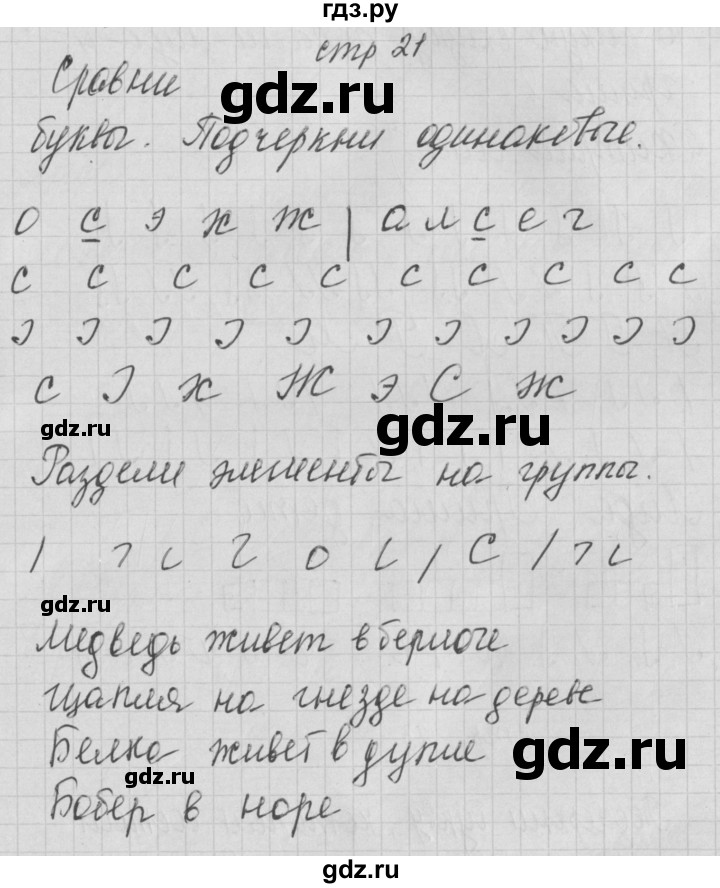 гдз.ру
стр 21
Сравни
gdz.ru
буквы. Подчеркни одинаковые.
о с э х ж | а л с е г
с с с с с с с с с с
э э э э э э э э э э э
с Э х Ж э С ж
gdz.ru
gdz.ru
Раздели элементы на группы.
gdz.ru
Медведь живет в берлоге
Цапля на гнезде на дереве
gdz.ru
Белка живет в дупле
gdz.ru
Бобер в норе
gdz.ru